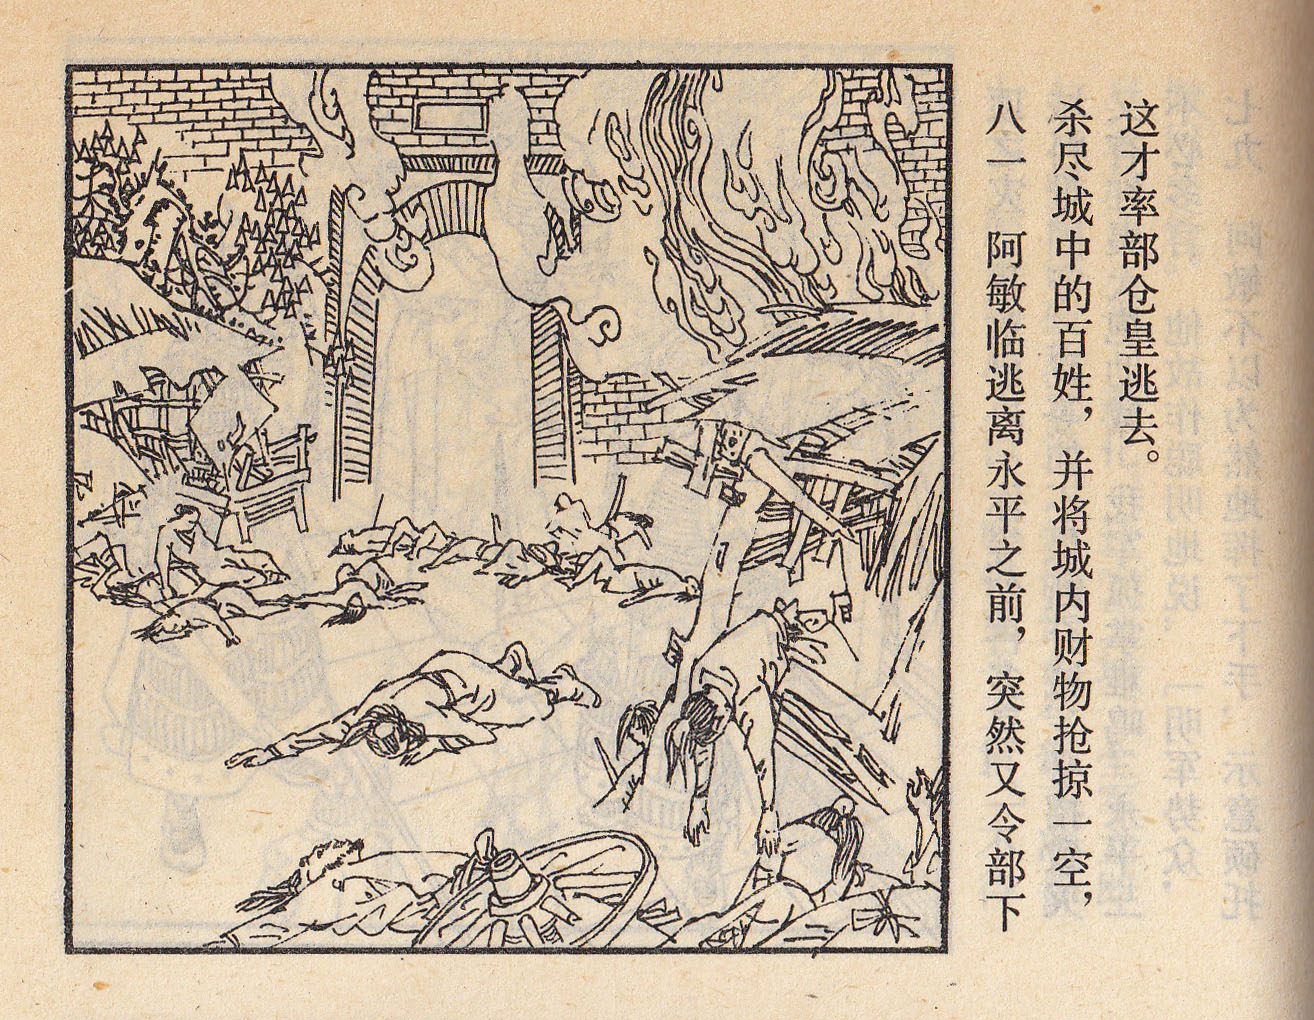 八一 阿敏临逃离永平之前，突然又令部下
杀尽城中的百姓，并将城内财物抢掠一空，
这才率部仓皇逃去。